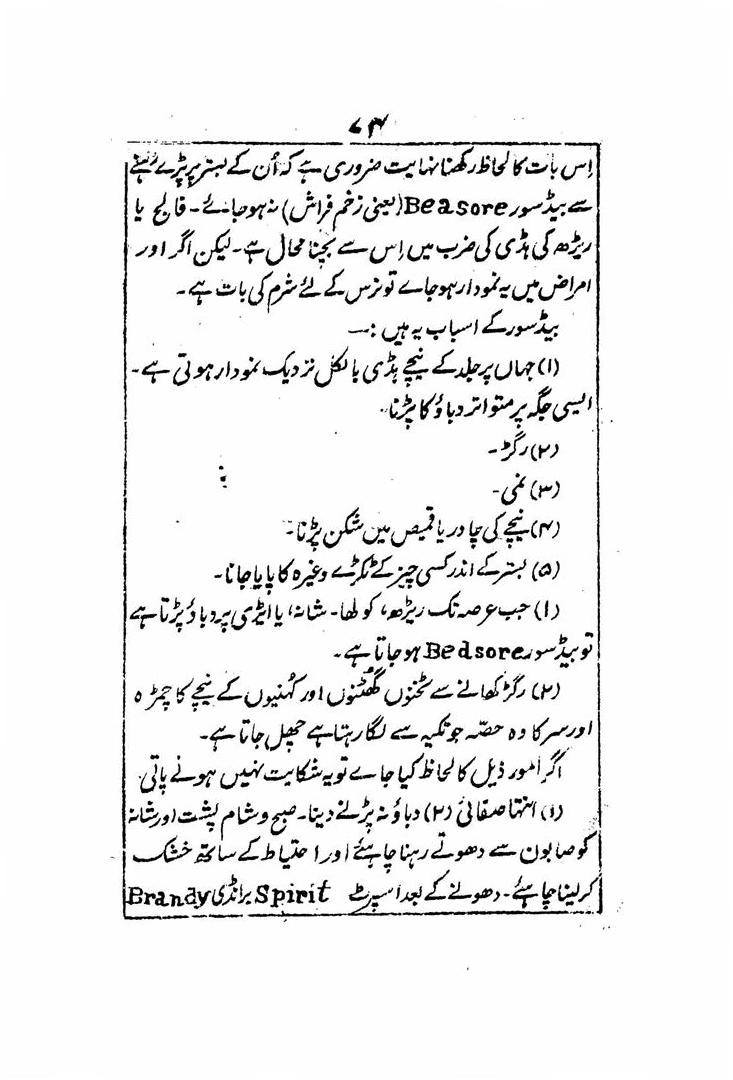 ۷۴
اِس بات کا لحاظ رکھنا نہایت ضروری ہے کہ اُن کے بستر پر پڑے رہنے
سے بیڈ سور Beasore (یعنی زخم فراش) نہ ہو جائے۔ فالج یا
ریڑھ کی ہڈی کی ضرب میں اِس سے بچنا محال ہے۔ لیکن اگر اور
امراض میں یہ نمودار ہو جاے تو نرس کے لئے شرم کی بات ہے۔
بیڈ سور کے اسباب یہ ہیں :—
(۱) جہاں پر جلد کے نیچے ہڈی بالکل نزدیک نمودار ہوتی ہے۔
ایسی جگہ پر متواتر دباؤ کا پڑنا۔
(۲) رگڑ۔
(۳) نمی۔
(۴) نیچے کی چادر یا قمیص میں شکن پڑنا۔
(۵) بستر کے اندر کسی چیز کے ٹکڑے وغیرہ کا پایا جانا۔
(۱) جب عرصہ تک ریڑھ، کولھا۔ شانہ، یا ایڑی پر دباؤ پڑتا ہے
تو بیڈ سور Bedsore ہو جاتا ہے۔
(۲) رگڑ کھانے سے ٹخنوں گھٹنوں اور کہنیوں کے نیچے کا چمڑہ
اور سر کا وہ حصّہ جو تکیہ سے لگا رہتا ہے چھل جاتا ہے۔
اگر اُمور ذیل کا لحاظ کیا جاے تو یہ شکایت نہیں ہونے پاتی
(۱) انتہا صفائی (۲) دباؤ نہ پڑنے دینا۔ صبح و شام پشت اور شانہ
کو صابون سے دھوتے رہنا چاہئے اور احتیاط کے ساتھ خشک
کر لینا چاہئے۔ دھونے کے بعد اسپرٹ Spirit برانڈی Brandy